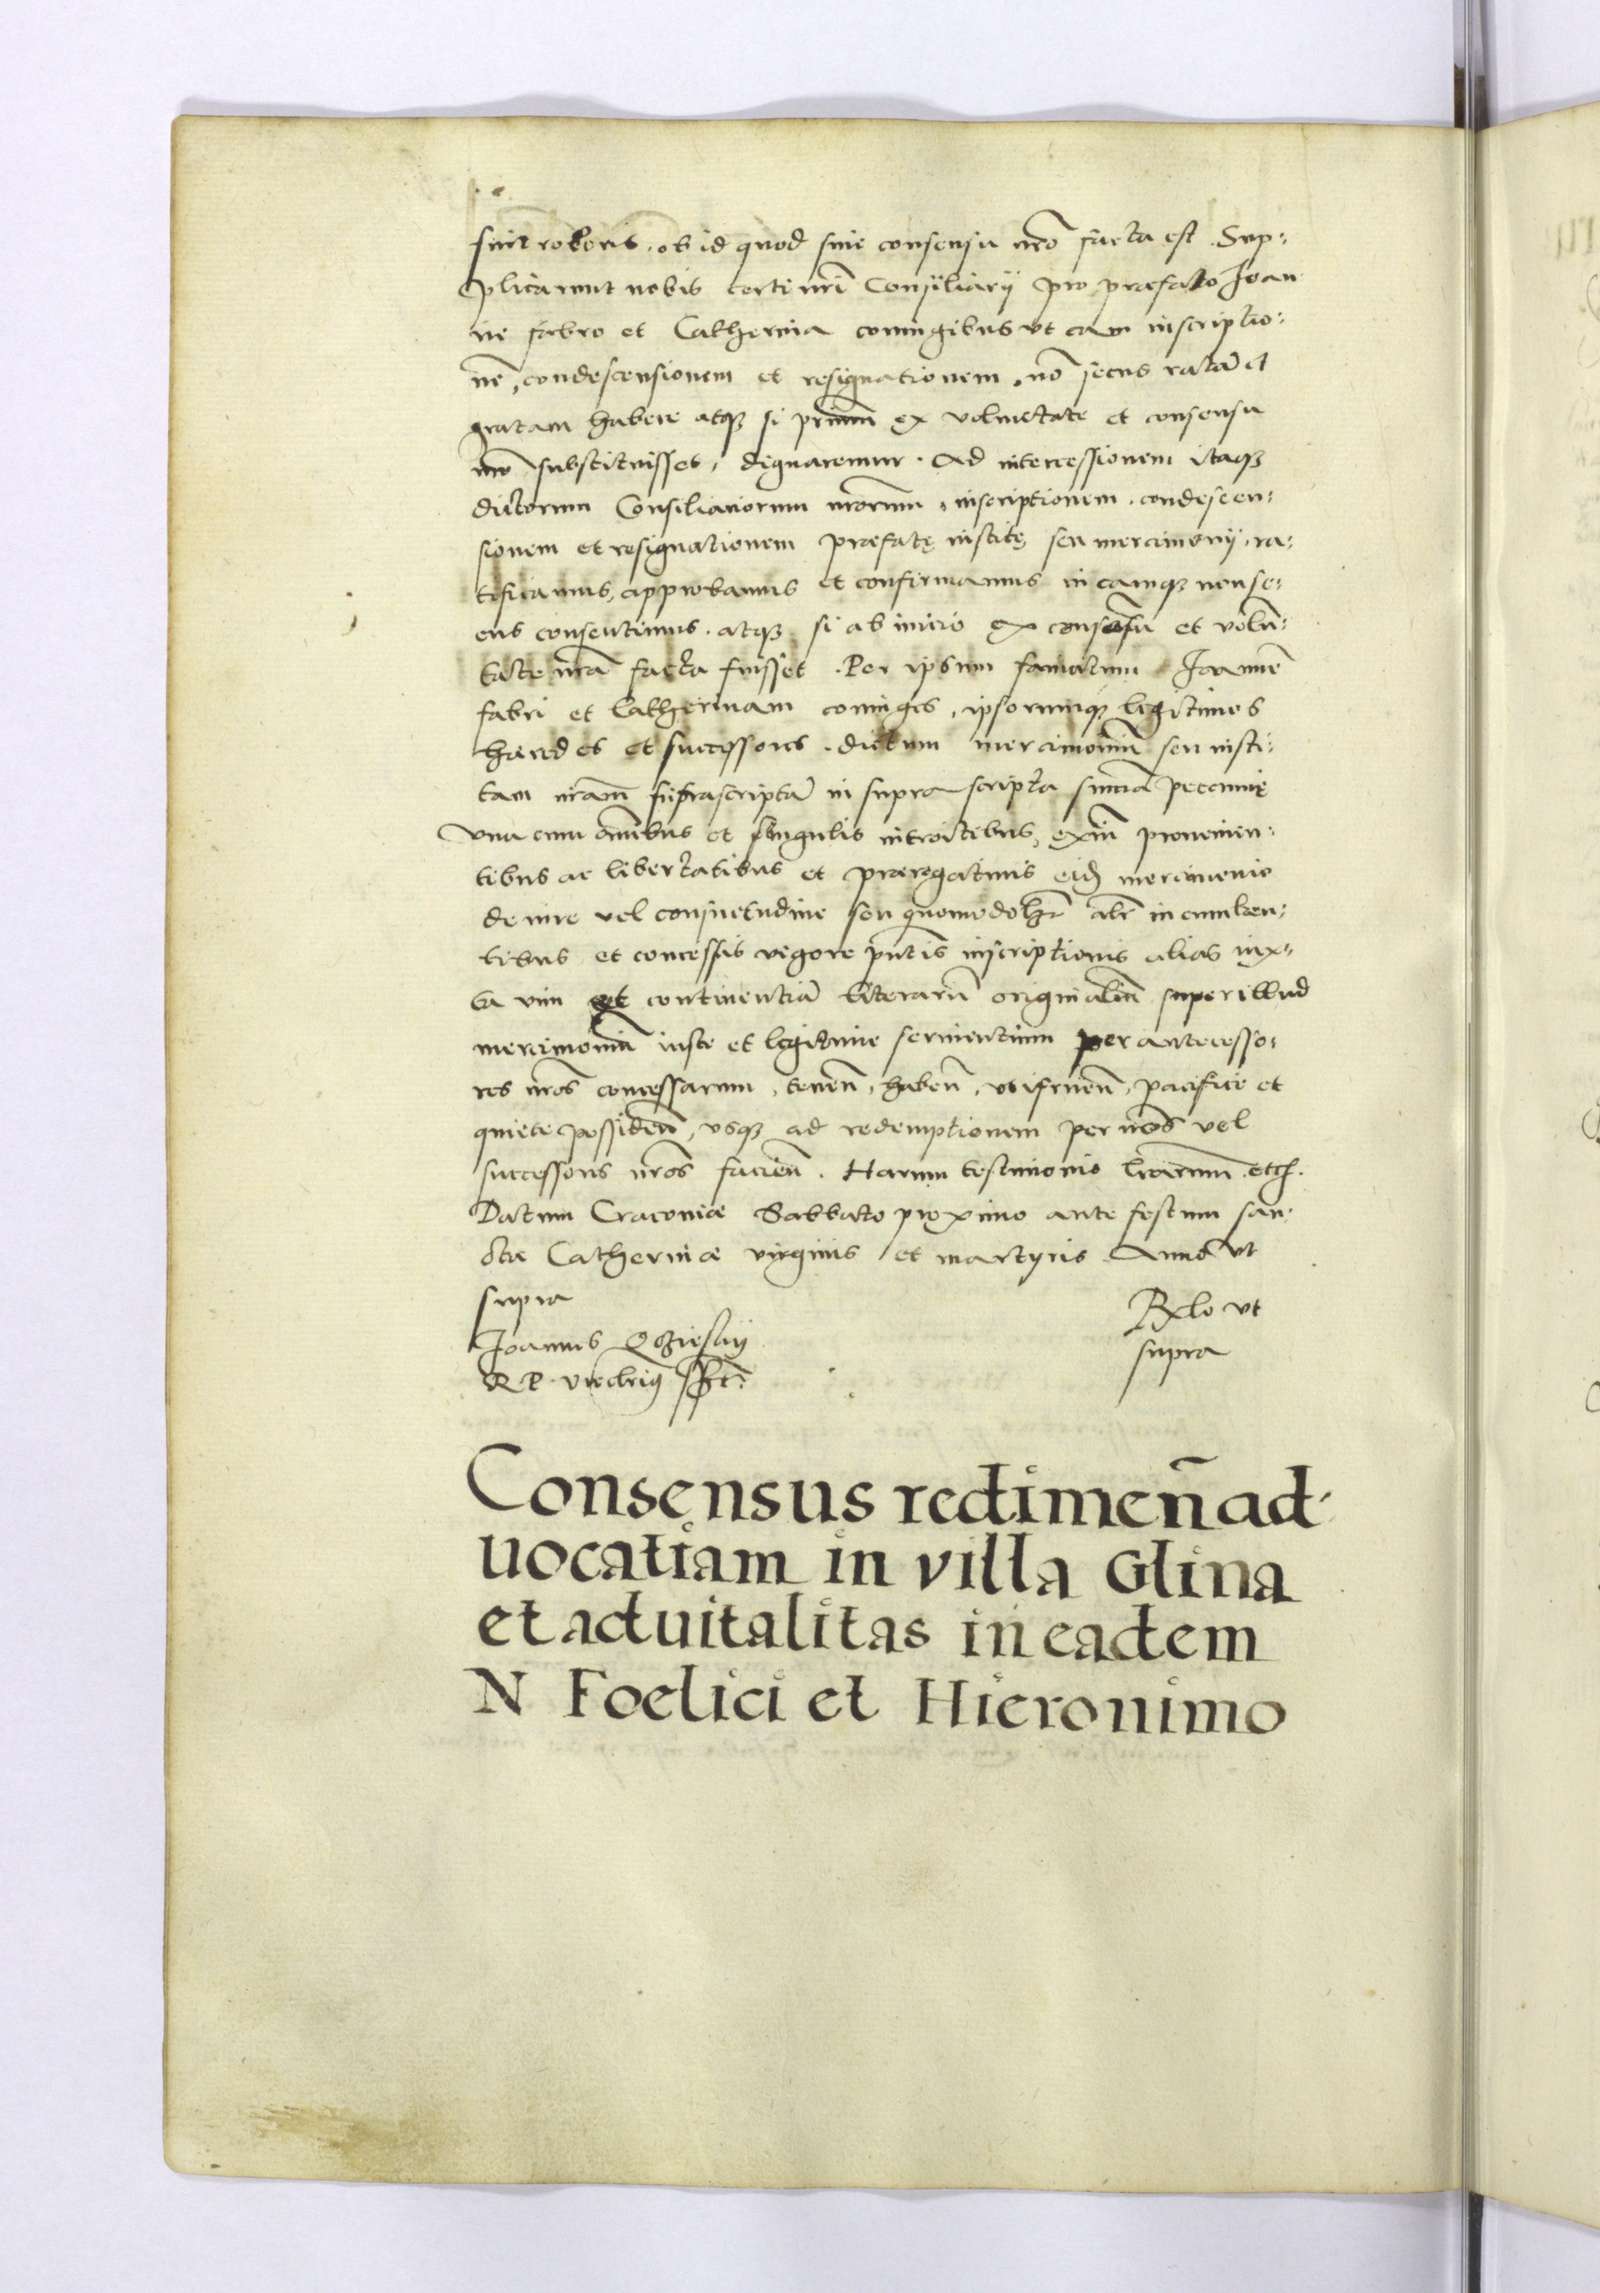 sint roboris, ob id quod sine consensu nrō facta est. Sup-
plicarunt nobis certi nrī Consiliarij pro præfato Joan
ne fabro et Catherina coniugibus vt eam inscriptio-
nē, condescensionem et resignationem, nō secus ratā et
gratam habere atq3 si primū ex voluntate et consensu
nrō substituisset, dignaremur. Ad intercessionem itaq3
dictorum Consiliariorum nrōrum, inscriptionem, condescen-
sionem et resignationem præfatę institę seu mercimonij, ra-
tificamus, approbamus et confirmamus in eamq3 non se-
cus consentimus, atq3 si ab inicio ex consensu et volū-
tate nrā facta fuisset. Per ipsum famatum Joannē
fabri et Catherinam coniuges, ipsorumq3 legitimos
hæredes et successores, dictum mercimoniū seu insti-
tam nrām infrascriptā in suprascripta sum̄a pecunię
vna cum om̄ibus et singulis introitibus, exin̄ prouenien-
tibus ac libertatibus et prærogatiuis eid mercimonio
de iure vel consuetudine seu quomodolz alr̄ incumben-
tibus et concessis vigore pn̄tis inscriptionis alias iux-
ta vim et continentiā literarū originaliū super illud
mercimoniū iuste et legitime seruientium per antecesso-
res nrōs concessarum, tenen̄, haben̄, vtifruen̄, pacifice et
quiete possiden̄, vsq3 ad redemptionem per nos vel
successores nrōs facien̄. Harum testimonio lrārum etc.
Datum Cracoviæ Sabbato proximo ante festum san-
ctæ Catherinæ virginis et martyris Anno vt
supra
Rlo vt
Joannes Ocziesky
supra
R P vicecanc̄riꝰ sszt:
Consensus redimen̄ ad-
uocatiam in villa Glina
et aduitalitas in eadem
N Foelici et Hieronimo